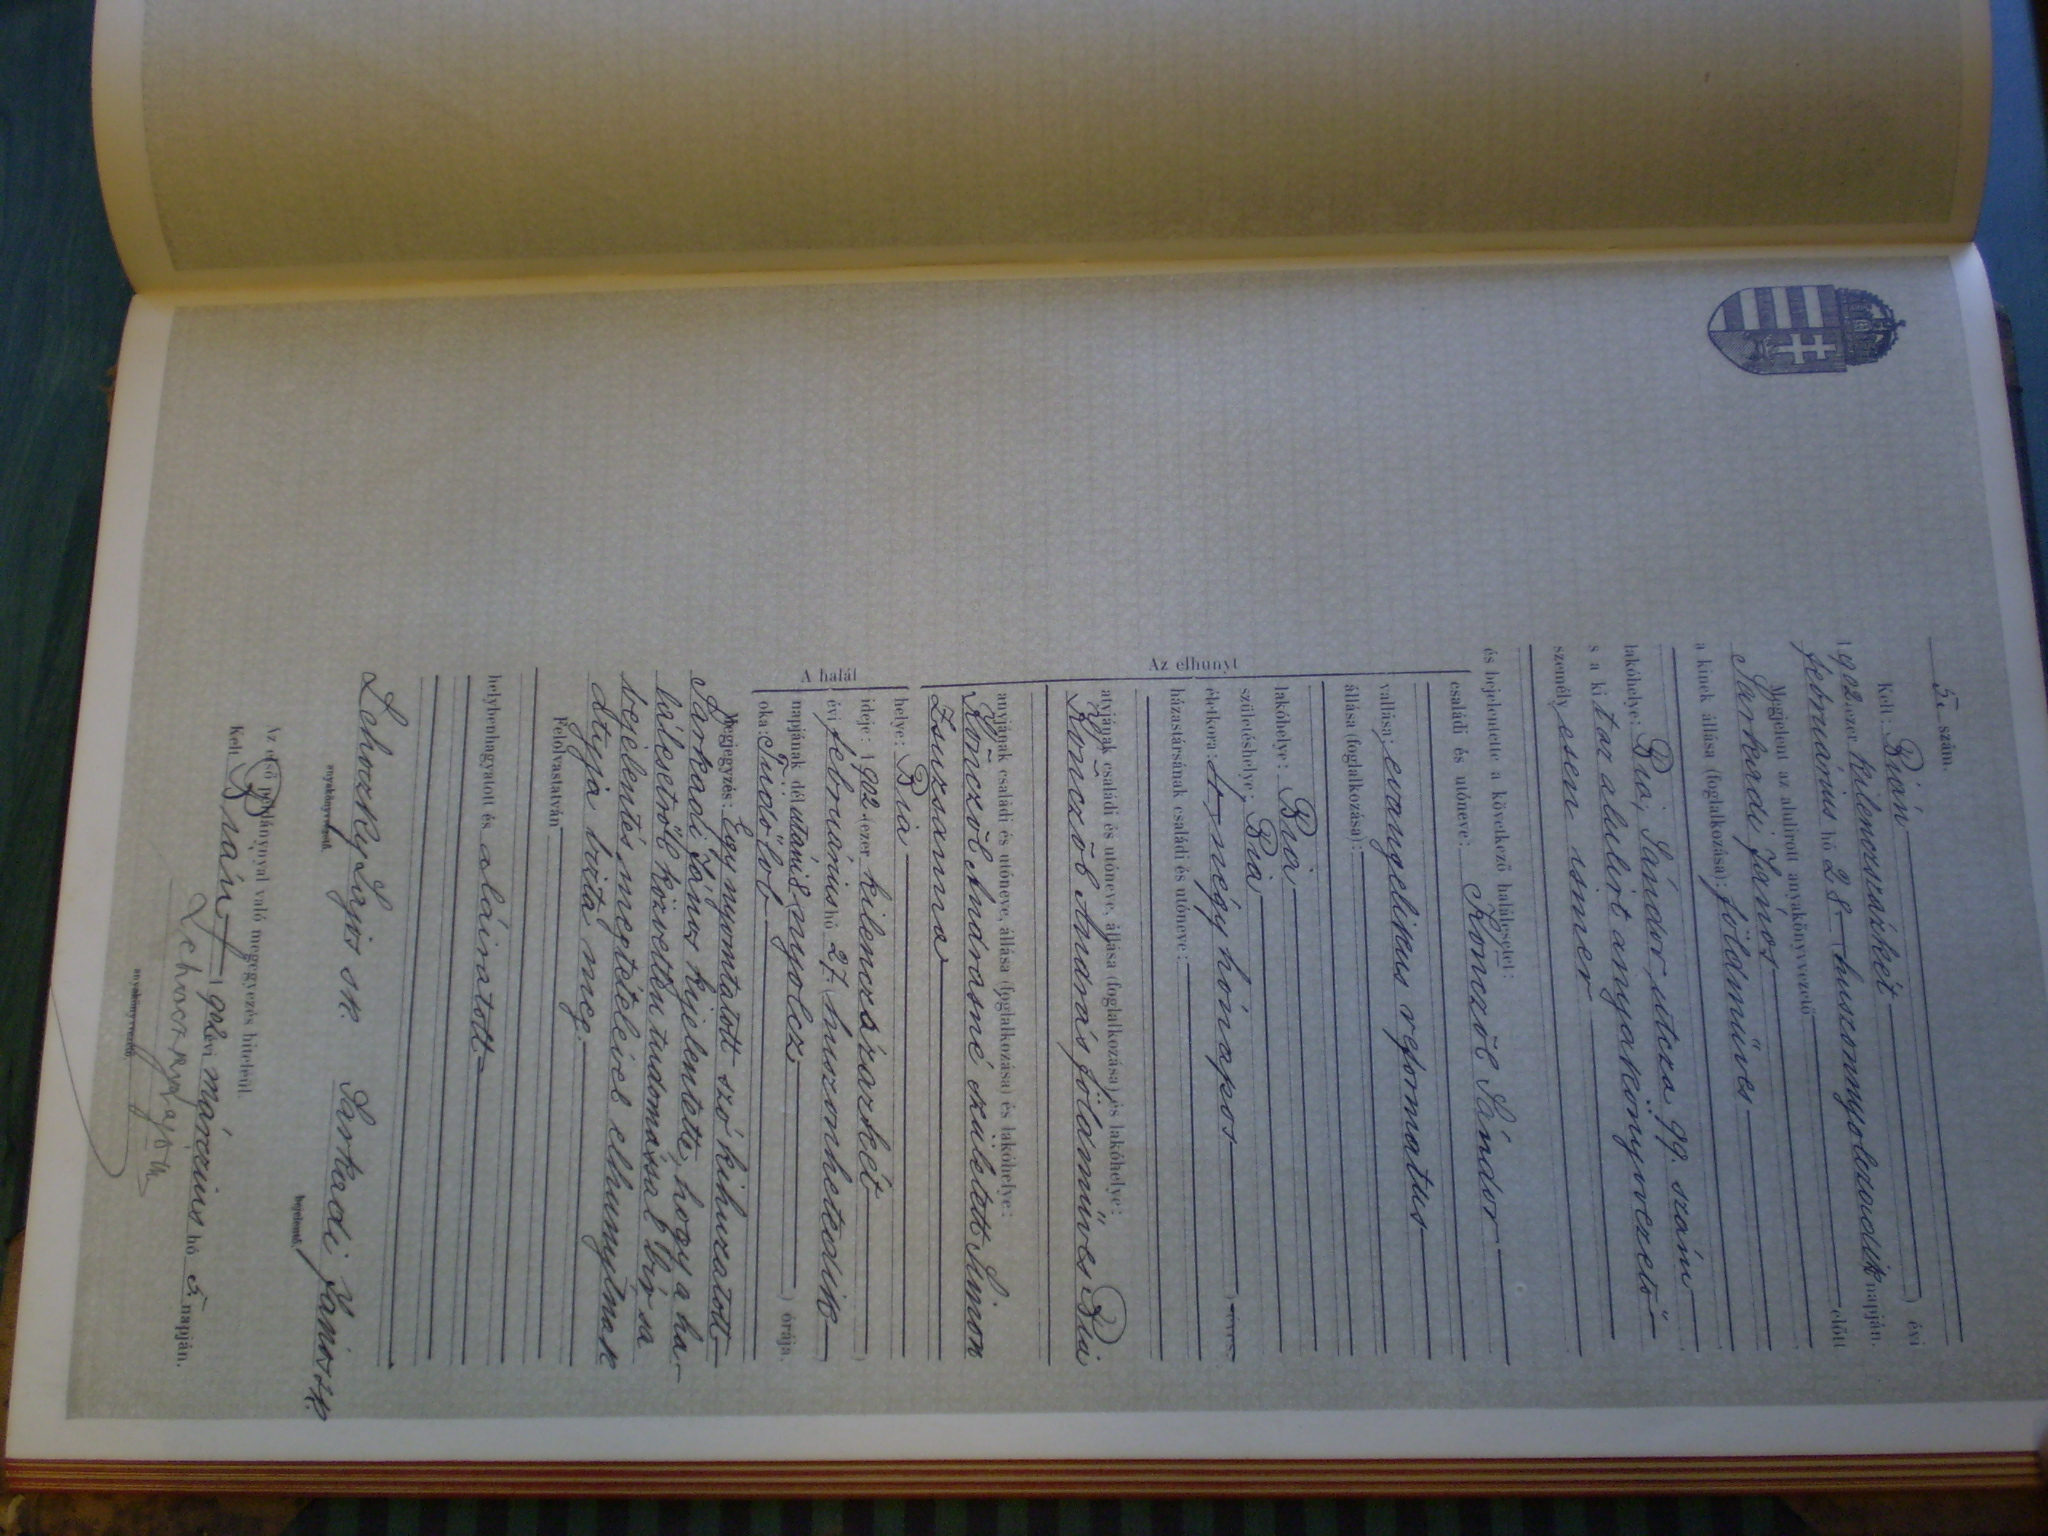 5. szám.
Kelt: Bián évi
1902 ezer kilenczszázkét
februárius hó 28 (huszonnyolczadik napján.
Megjelent az alulirott anyakönyvvezető előtt
Sarkadi János
a kinek állása (foglalkozása): földmüves
lakóhelye: Bia, Sándor utcza 99. szám
s a ki tar alulirt anyakönyvvezető
személyesen ismer
és bejelentette a következő halálesetet:
családi és utóneve: Konczöl Sándor
Az elhunyt
vallása: evangelikus reformatus
állása (foglalkozása):
lakóhelye: Bia
születéshelye: Bia
életkora: négy hónapos éves
házastársának családi és utóneve:
atyjának családi és utóneve, állása (foglalkozása) és lakóhelye:
Konczöl András földmüves Bia
anyjának családi és utóneve, állása (foglalkozása) és lakóhelye:
Konczöl Andrásné született Simon
Zsuzsanna
A halál
helye: Bia
ideje: 1902 (ezer kilenczszázkét )
évi februárius hó 27. (huszonhetedik )
napjának délutáni 8 nyolcz ) órája.
oka: Tüdőlob
Megjegyzés: Egy nyomtatott szó kihuzatott
Sarkadi János kijelentette, hogy a ha-
lálesetről közvetlen tudomással bír sa
bejelentés megtételével elhunytnak
atyja bizta meg.
Felolvastatván
helybenhagyatott és aláiratott.
Lehoczky Lajos sk. Sarkadi János sk.
anyakönyvvezető. bejelentő.
Az első példánynyal való megegyezés hiteléül.
Kelt Bián 1902 évi márczius hó 5 napján.
Lehoczky Lajos
anyakönyvvezető.